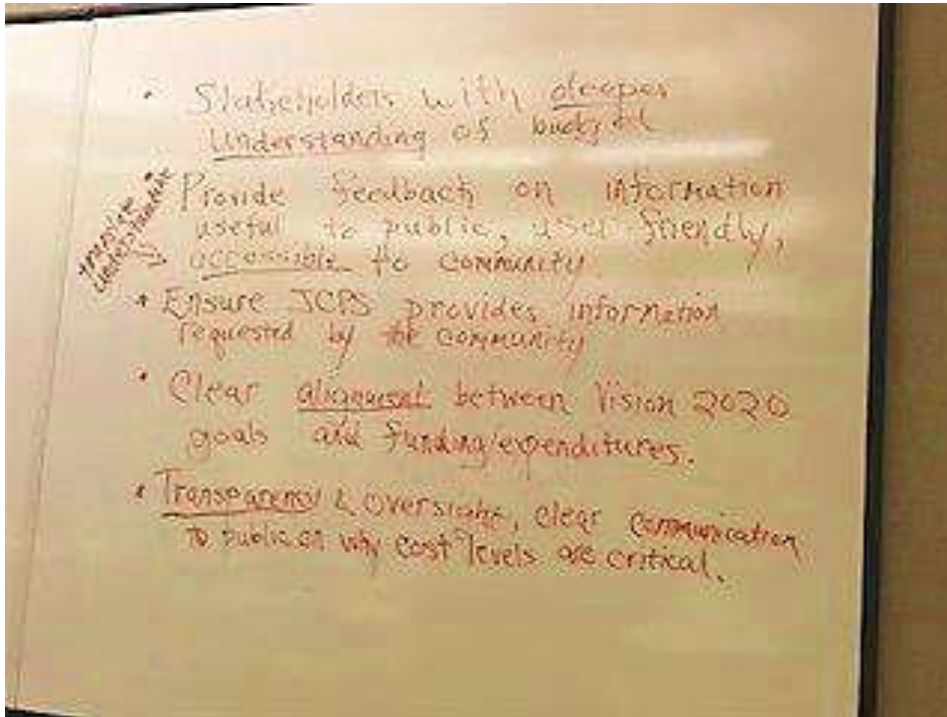 • Stakeholders with deeper
understanding of budget
• Provide feedback on information
useful to public, user friendly,
accessible to community
understandable
• Ensure JCPS provides information
requested by the community
• Clear alignment between Vision 2020
goals and funding/expenditures.
• Transparency & oversight, clear communication
to public on why cost levels are critical.